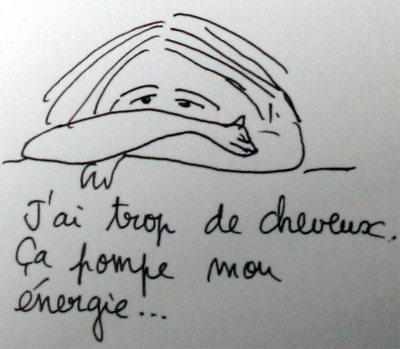 J'ai trop de cheveux.
Ça pompe mon
énergie...